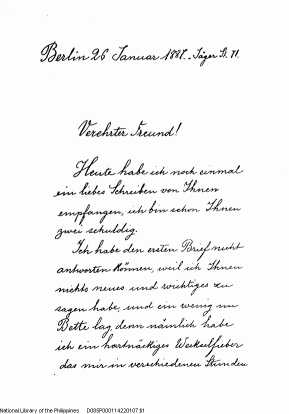 Berlin 26 Januar 1887. Jäger St. 71.
Verehrter Freund!
Heute habe ich noch einmal
ein liebes Schreiben von Ihnen
empfangen, ich bin schon Ihnen
zwei schuldig.
Ich habe den ersten Brief nicht
antworten können, weil ich Ihnen
nichts neues und wichtiges zu
sagen habe, und ein wenig im
Bette lag denn nämlich habe
ich ein hartnäckiges Wechselfieber
das mir in verschiedenen Stunden
National Library of the Philippines D00SP000114220107.tif